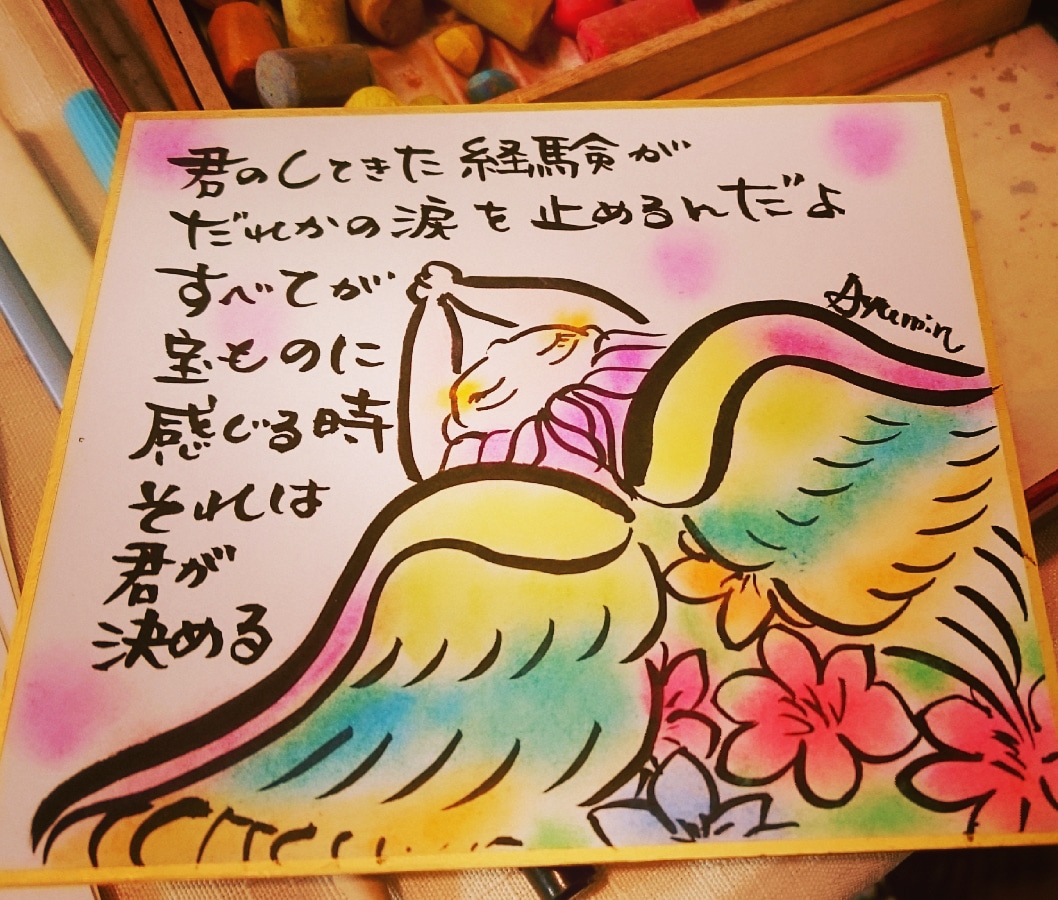 君のしてきた経験が
だれかの涙を止めるんだよ
すべてが
宝ものに
感じる時
それは
君が
決める
Ayumin